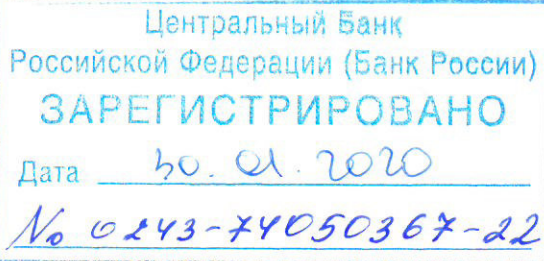 Центральный Банк
Российской Федерации (Банк России)
ЗАРЕГИСТРИРОВАНО
Дата 30.01.2020
№ 0243-74050367-22